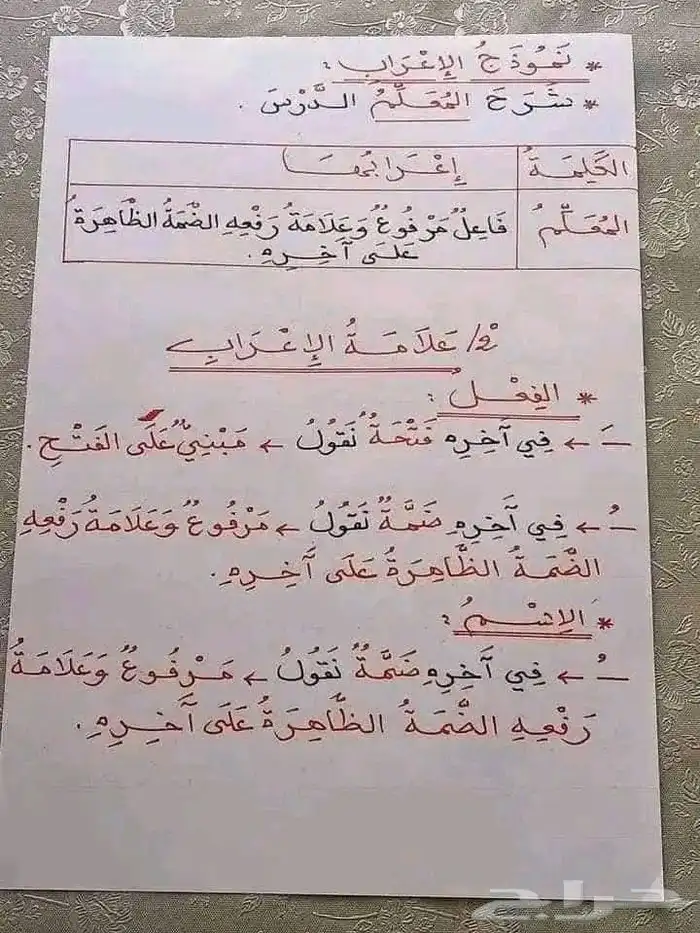 * نَمُوذَجُ الإِعْرَابِ :
* شَرَحَ المُعَلِّمُ الدَّرْسَ .
الكَلِمَةُ إِعْرَابُهَا
المُعَلِّمُ فَاعِلٌ مَرْفُوعٌ وَعَلَامَةُ رَفْعِهِ الضَّمَةُ الظَّاهِرَةُ
عَلَى آخِرِهِ .
2/ عَلَامَةُ الإِعْرَابِ
* الفِعْلُ :
ـَ ← فِي آخِرِهِ فَتْحَةٌ نَقُولُ ← مَبْنِيٌّ عَلَى الفَتْحِ .
ـُ ← فِي آخِرِهِ ضَمَّةٌ نَقُولُ ← مَرْفُوعٌ وَعَلَامَةُ رَفْعِهِ
الضَّمَةُ الظَّاهِرَةُ عَلَى آخِرِهِ .
* الإِسْمُ :
ـُ ← فِي آخِرِهِ ضَمَّةٌ نَقُولُ ← مَرْفُوعٌ وَعَلَامَةُ
رَفْعِهِ الضَّمَةُ الظَّاهِرَةُ عَلَى آخِرِهِ .
حراج